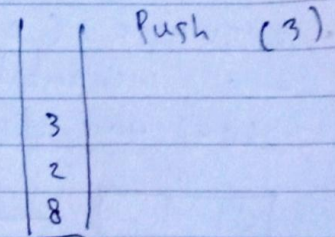 Push (3)
3
2
8